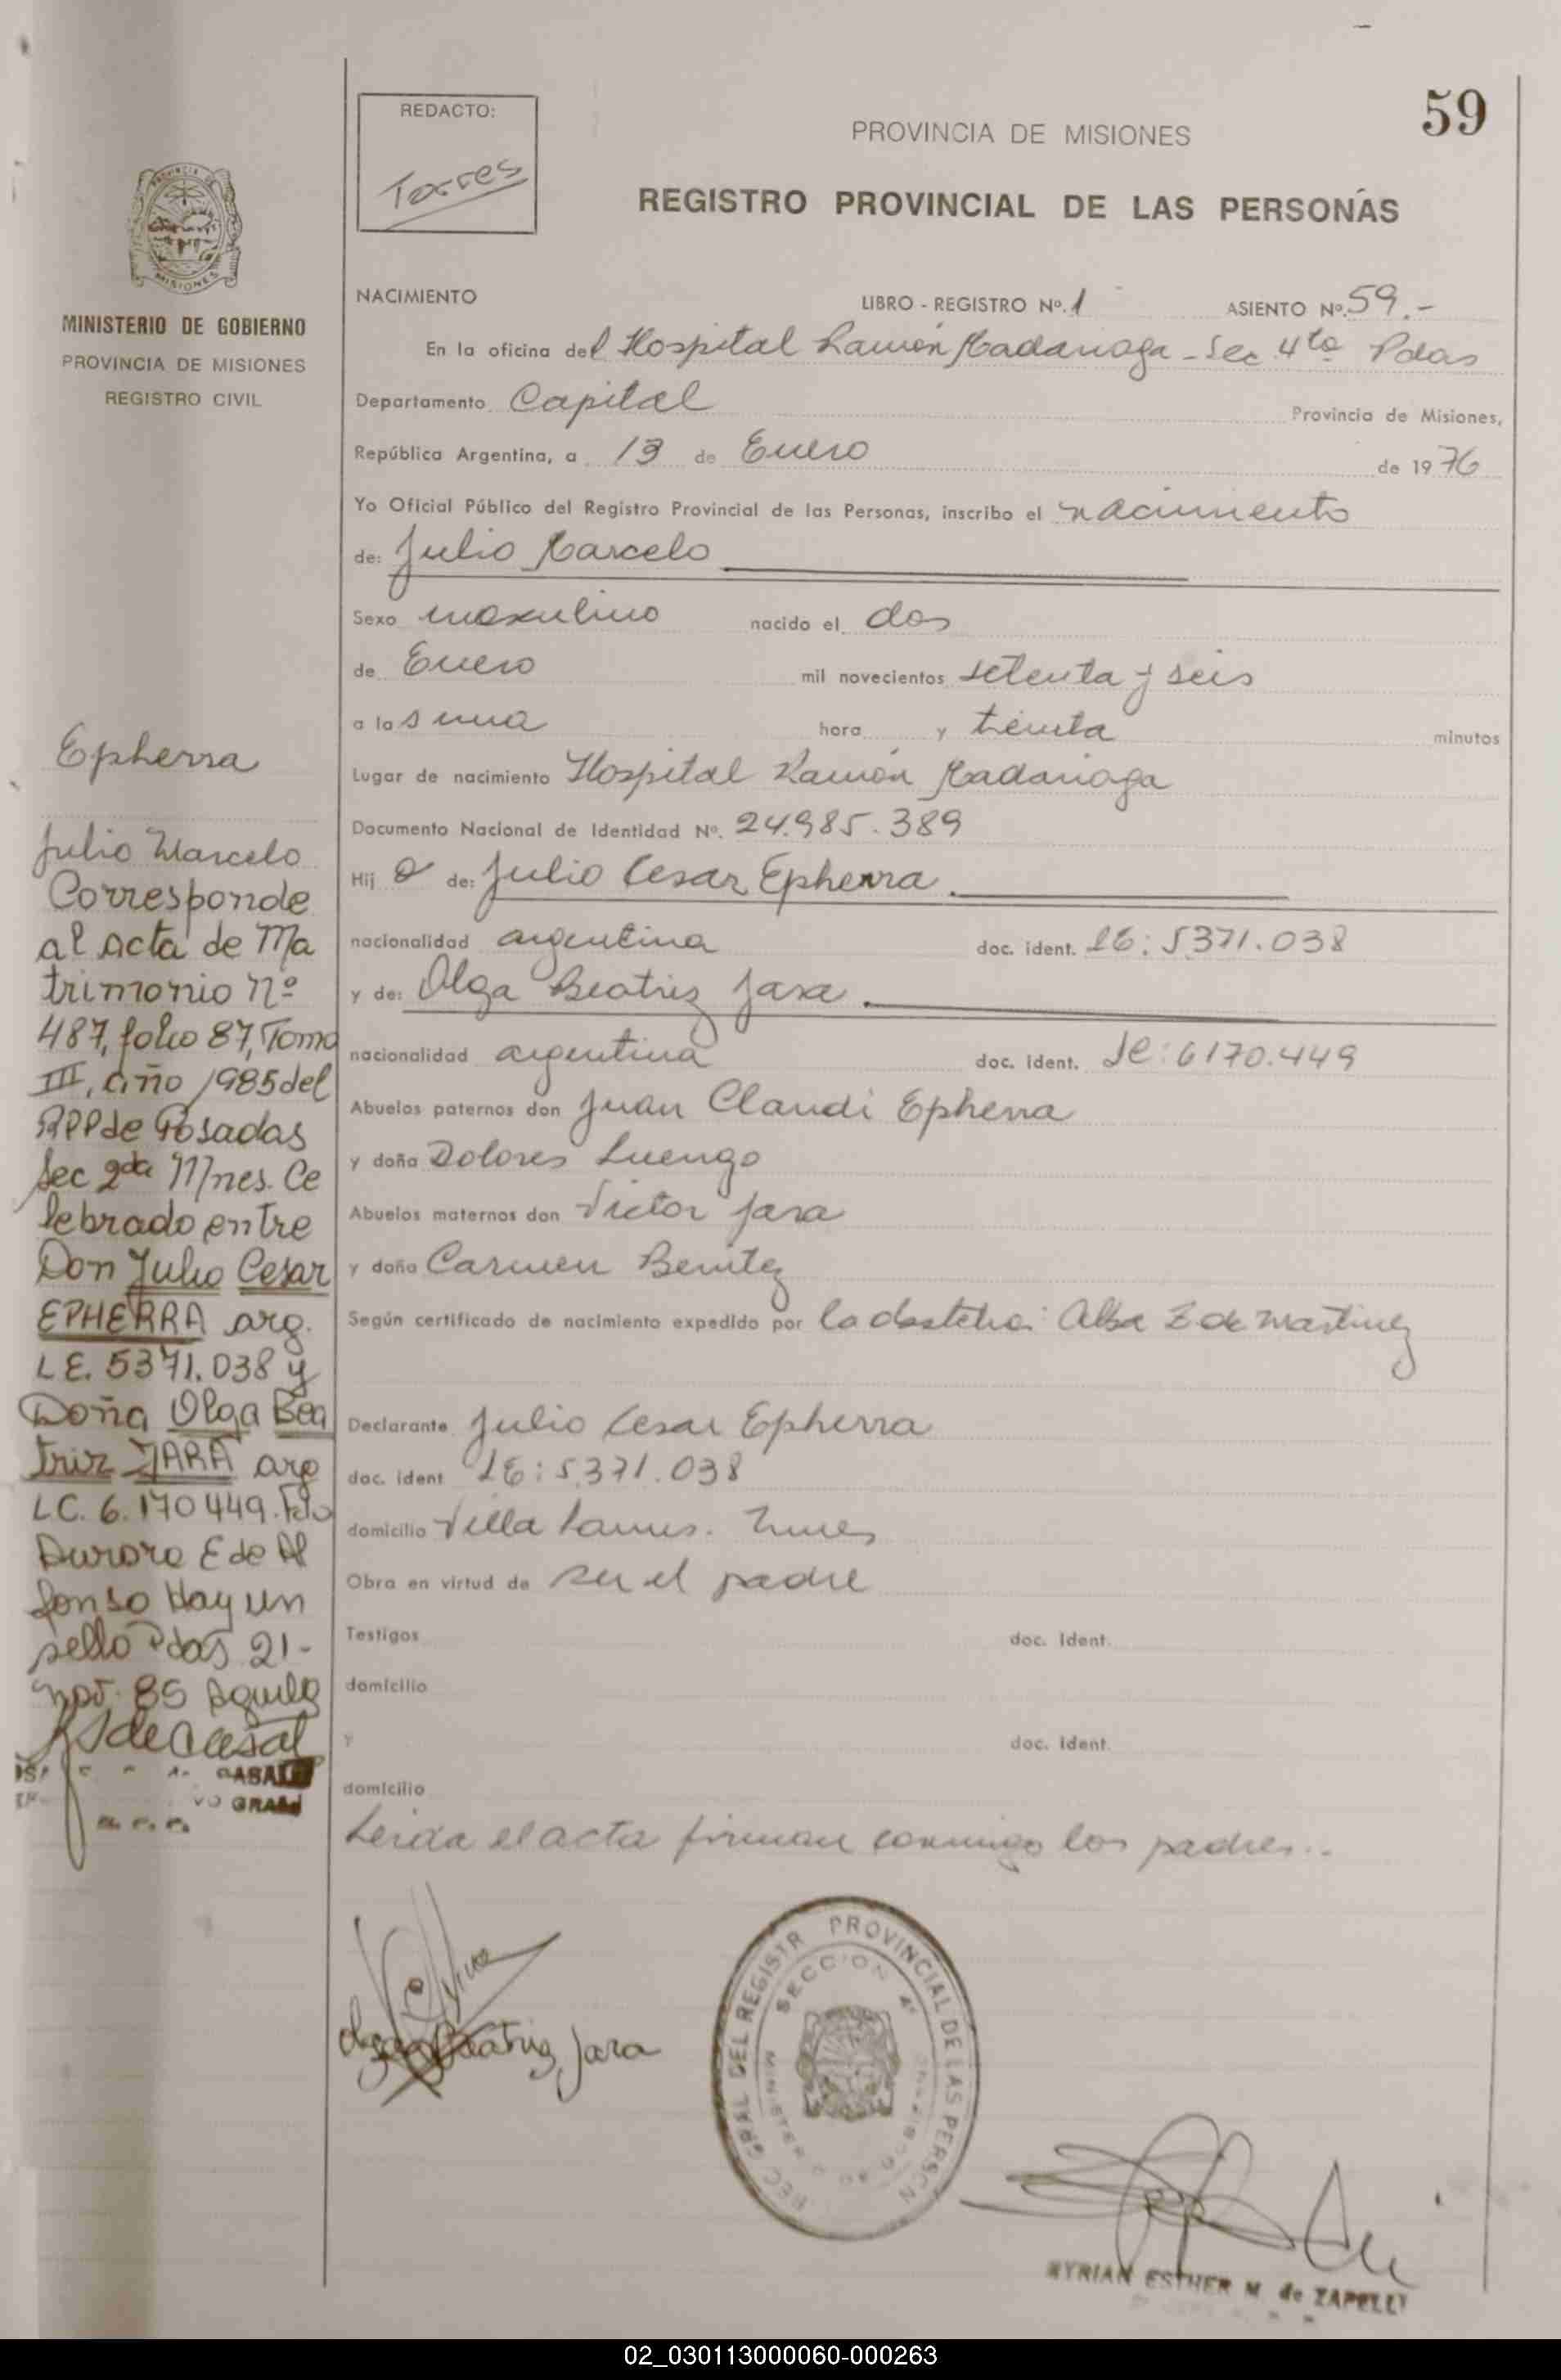 59
REDACTO:
Torres
PROVINCIA DE MISIONES
REGISTRO PROVINCIAL DE LAS PERSONAS
MINISTERIO DE GOBIERNO
PROVINCIA DE MISIONES
REGISTRO CIVIL
NACIMIENTO LIBRO - REGISTRO Nº. 1 ASIENTO Nº. 59.-
En la oficina del Hospital Ramón Madariaga - Sec 4ta Pdas
Departamento Capital Provincia de Misiones,
República Argentina, a 13 de Enero de 1976
Yo Oficial Público del Registro Provincial de las Personas, inscribo el nacimiento
de: Julio Marcelo
Sexo masculino nacido el dos
de Enero mil novecientos setenta y seis
a las una hora y treinta minutos
Lugar de nacimiento Hospital Ramón Madariaga
Documento Nacional de Identidad Nº. 24.985.389
Hij o de: Julio Cesar Epherra.
nacionalidad argentina doc. ident. LE: 5371.038
y de: Olga Beatriz Jara.
nacionalidad argentina doc. ident. Lc: 6170.449
Abuelos paternos don Juan Claudi Epherra
y doña Dolores Luengo
Abuelos maternos don Victor Jara
y doña Carmen Benitez
Según certificado de nacimiento expedido por la obstetra: Alba Z de Martinez
Declarante Julio Cesar Epherra
doc. ident LE: 5.371.038
domicilio Villa Lanus.
Obra en virtud de ser el padre
Testigos doc. ident.
domicilio
y doc. ident.
domicilio
Leida el acta firman conmigo los padres..
Epherra
Julio Marcelo
Corresponde
al acta de Ma
trimonio nº
487, folio 87, Tomo
III, año 1985 del
RPP de Posadas
Sec 2da Mnes. Ce
lebrado entre
Don Julio Cesar
EPHERRA arg.
LE. 5371.038 y
Doña Olga Bea
triz JARA arg
LC. 6.170449. Fdo
Aurora E de Al
fonso Hay un
sello Pdas 21-
nov. 85
de Casal
Olga Beatriz Jara
REGISTR PROVINCIAL DE LAS PERSON
SECCION 4ª
MYRIAN ESTHER M. de ZAPELLI
02_030113000060-000263